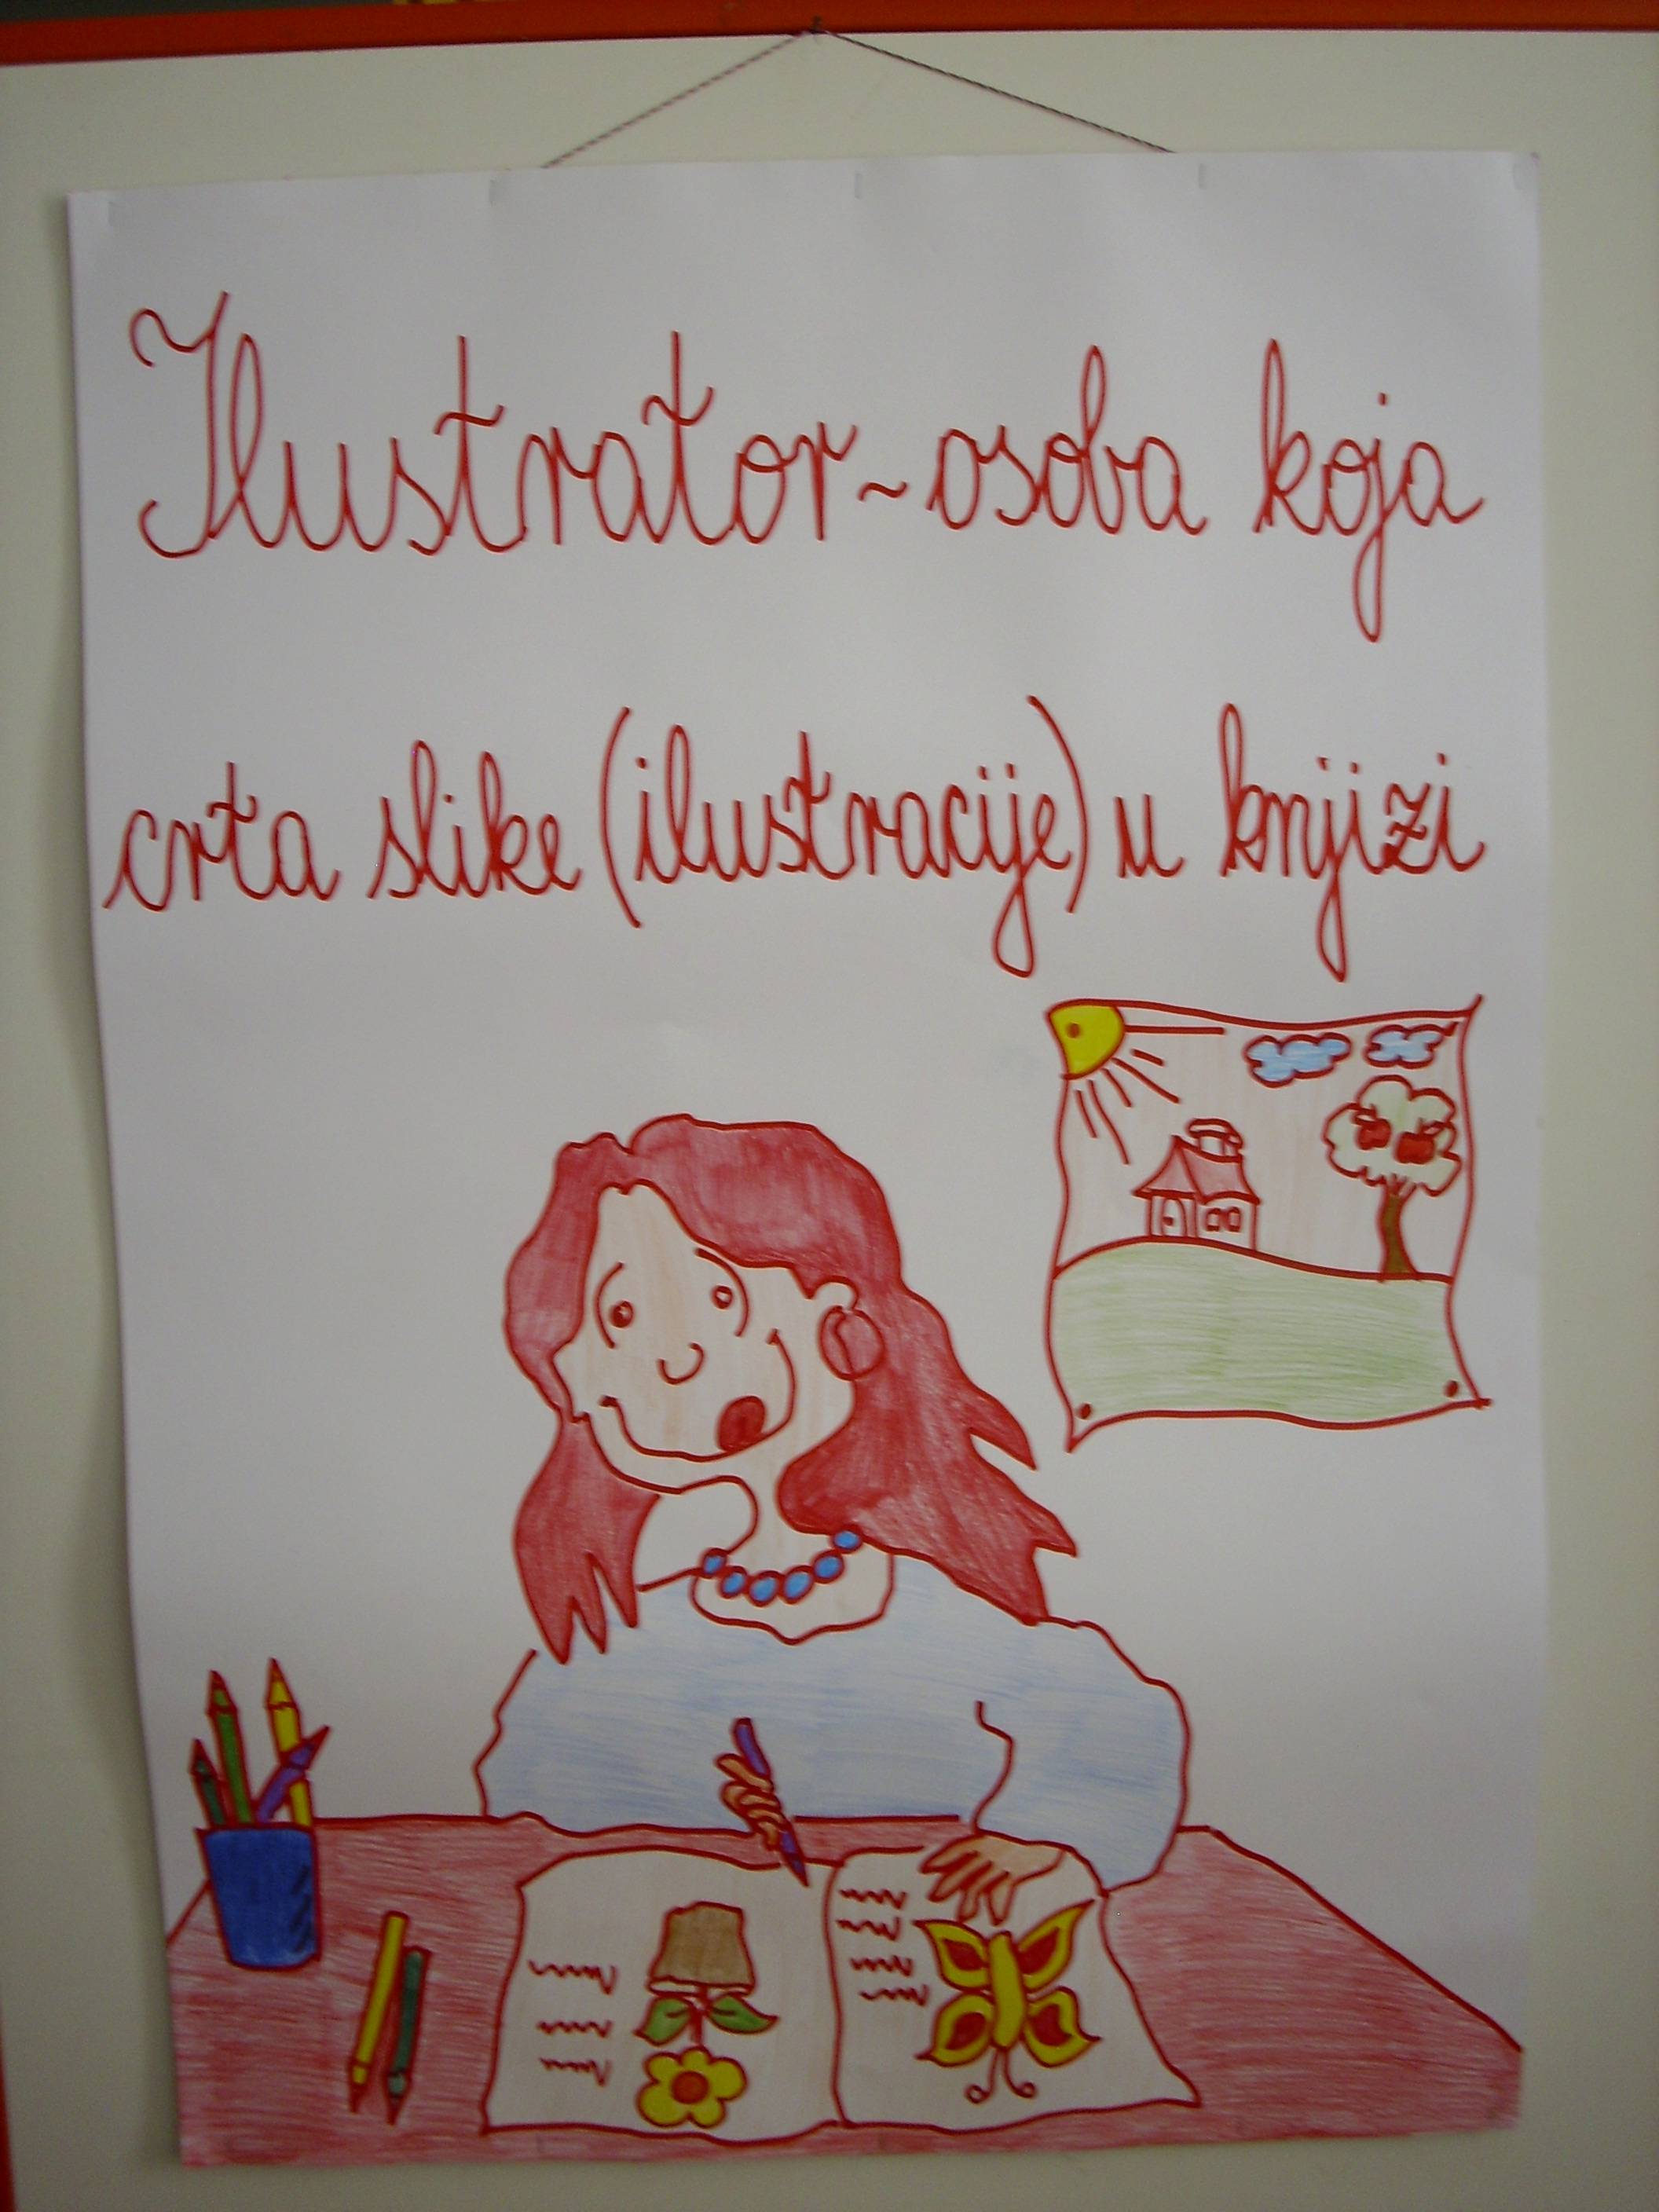 Ilustrator - osoba koja
crta slike (ilustracije) u knjizi